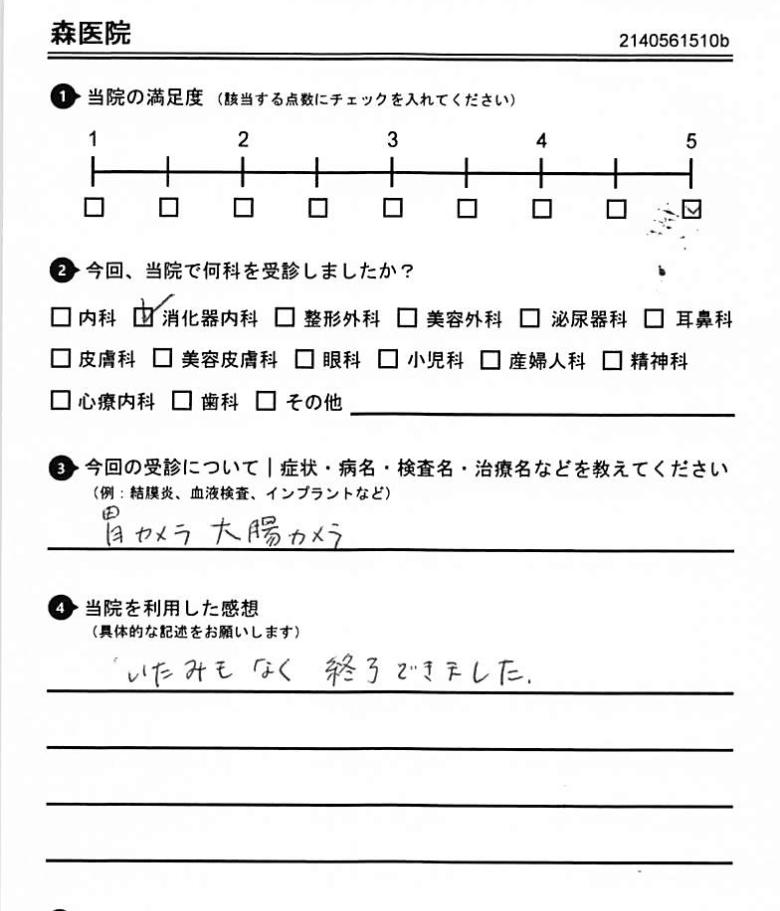 森医院 2140561510b
1 当院の満足度 (該当する点数にチェックを入れてください)
1 2 3 4 5
2 今回、当院で何科を受診しましたか?
内科 消化器内科 整形外科 美容外科 泌尿器科 耳鼻科
皮膚科 美容皮膚科 眼科 小児科 産婦人科 精神科
心療内科 歯科 その他
3 今回の受診について|症状・病名・検査名・治療名などを教えてください
(例:結膜炎、血液検査、インプラントなど)
胃カメラ 大腸カメラ
4 当院を利用した感想
(具体的な記述をお願いします)
いたみもなく 終了できました.